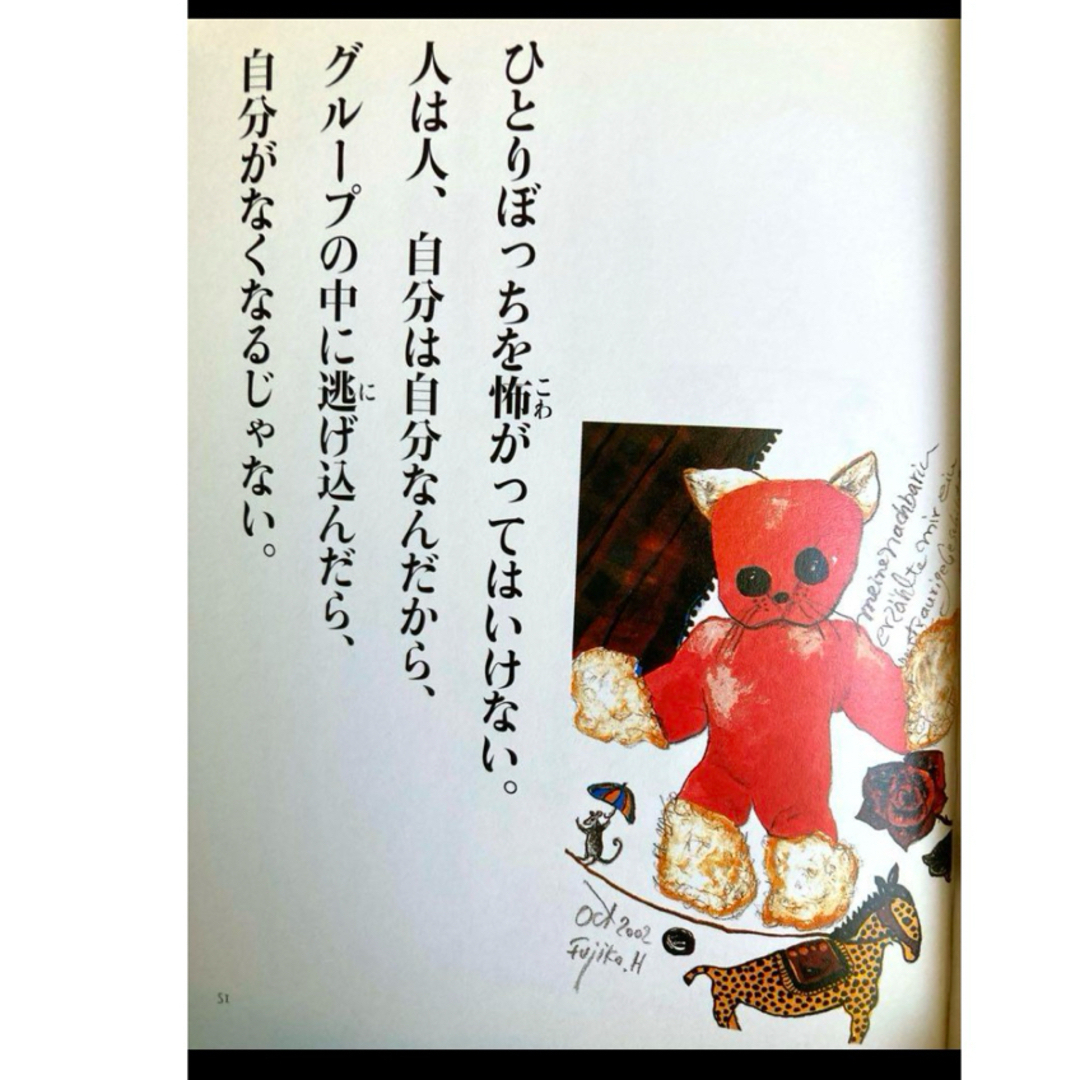 ひとりぼっちを怖がってはいけない。
こわ
人は人、自分は自分なんだから、
グループの中に逃げ込んだら、
に
自分がなくなるじゃない。
meine nachbarin
erzählte mir ein
Oct 2002
Fujiko.H
51